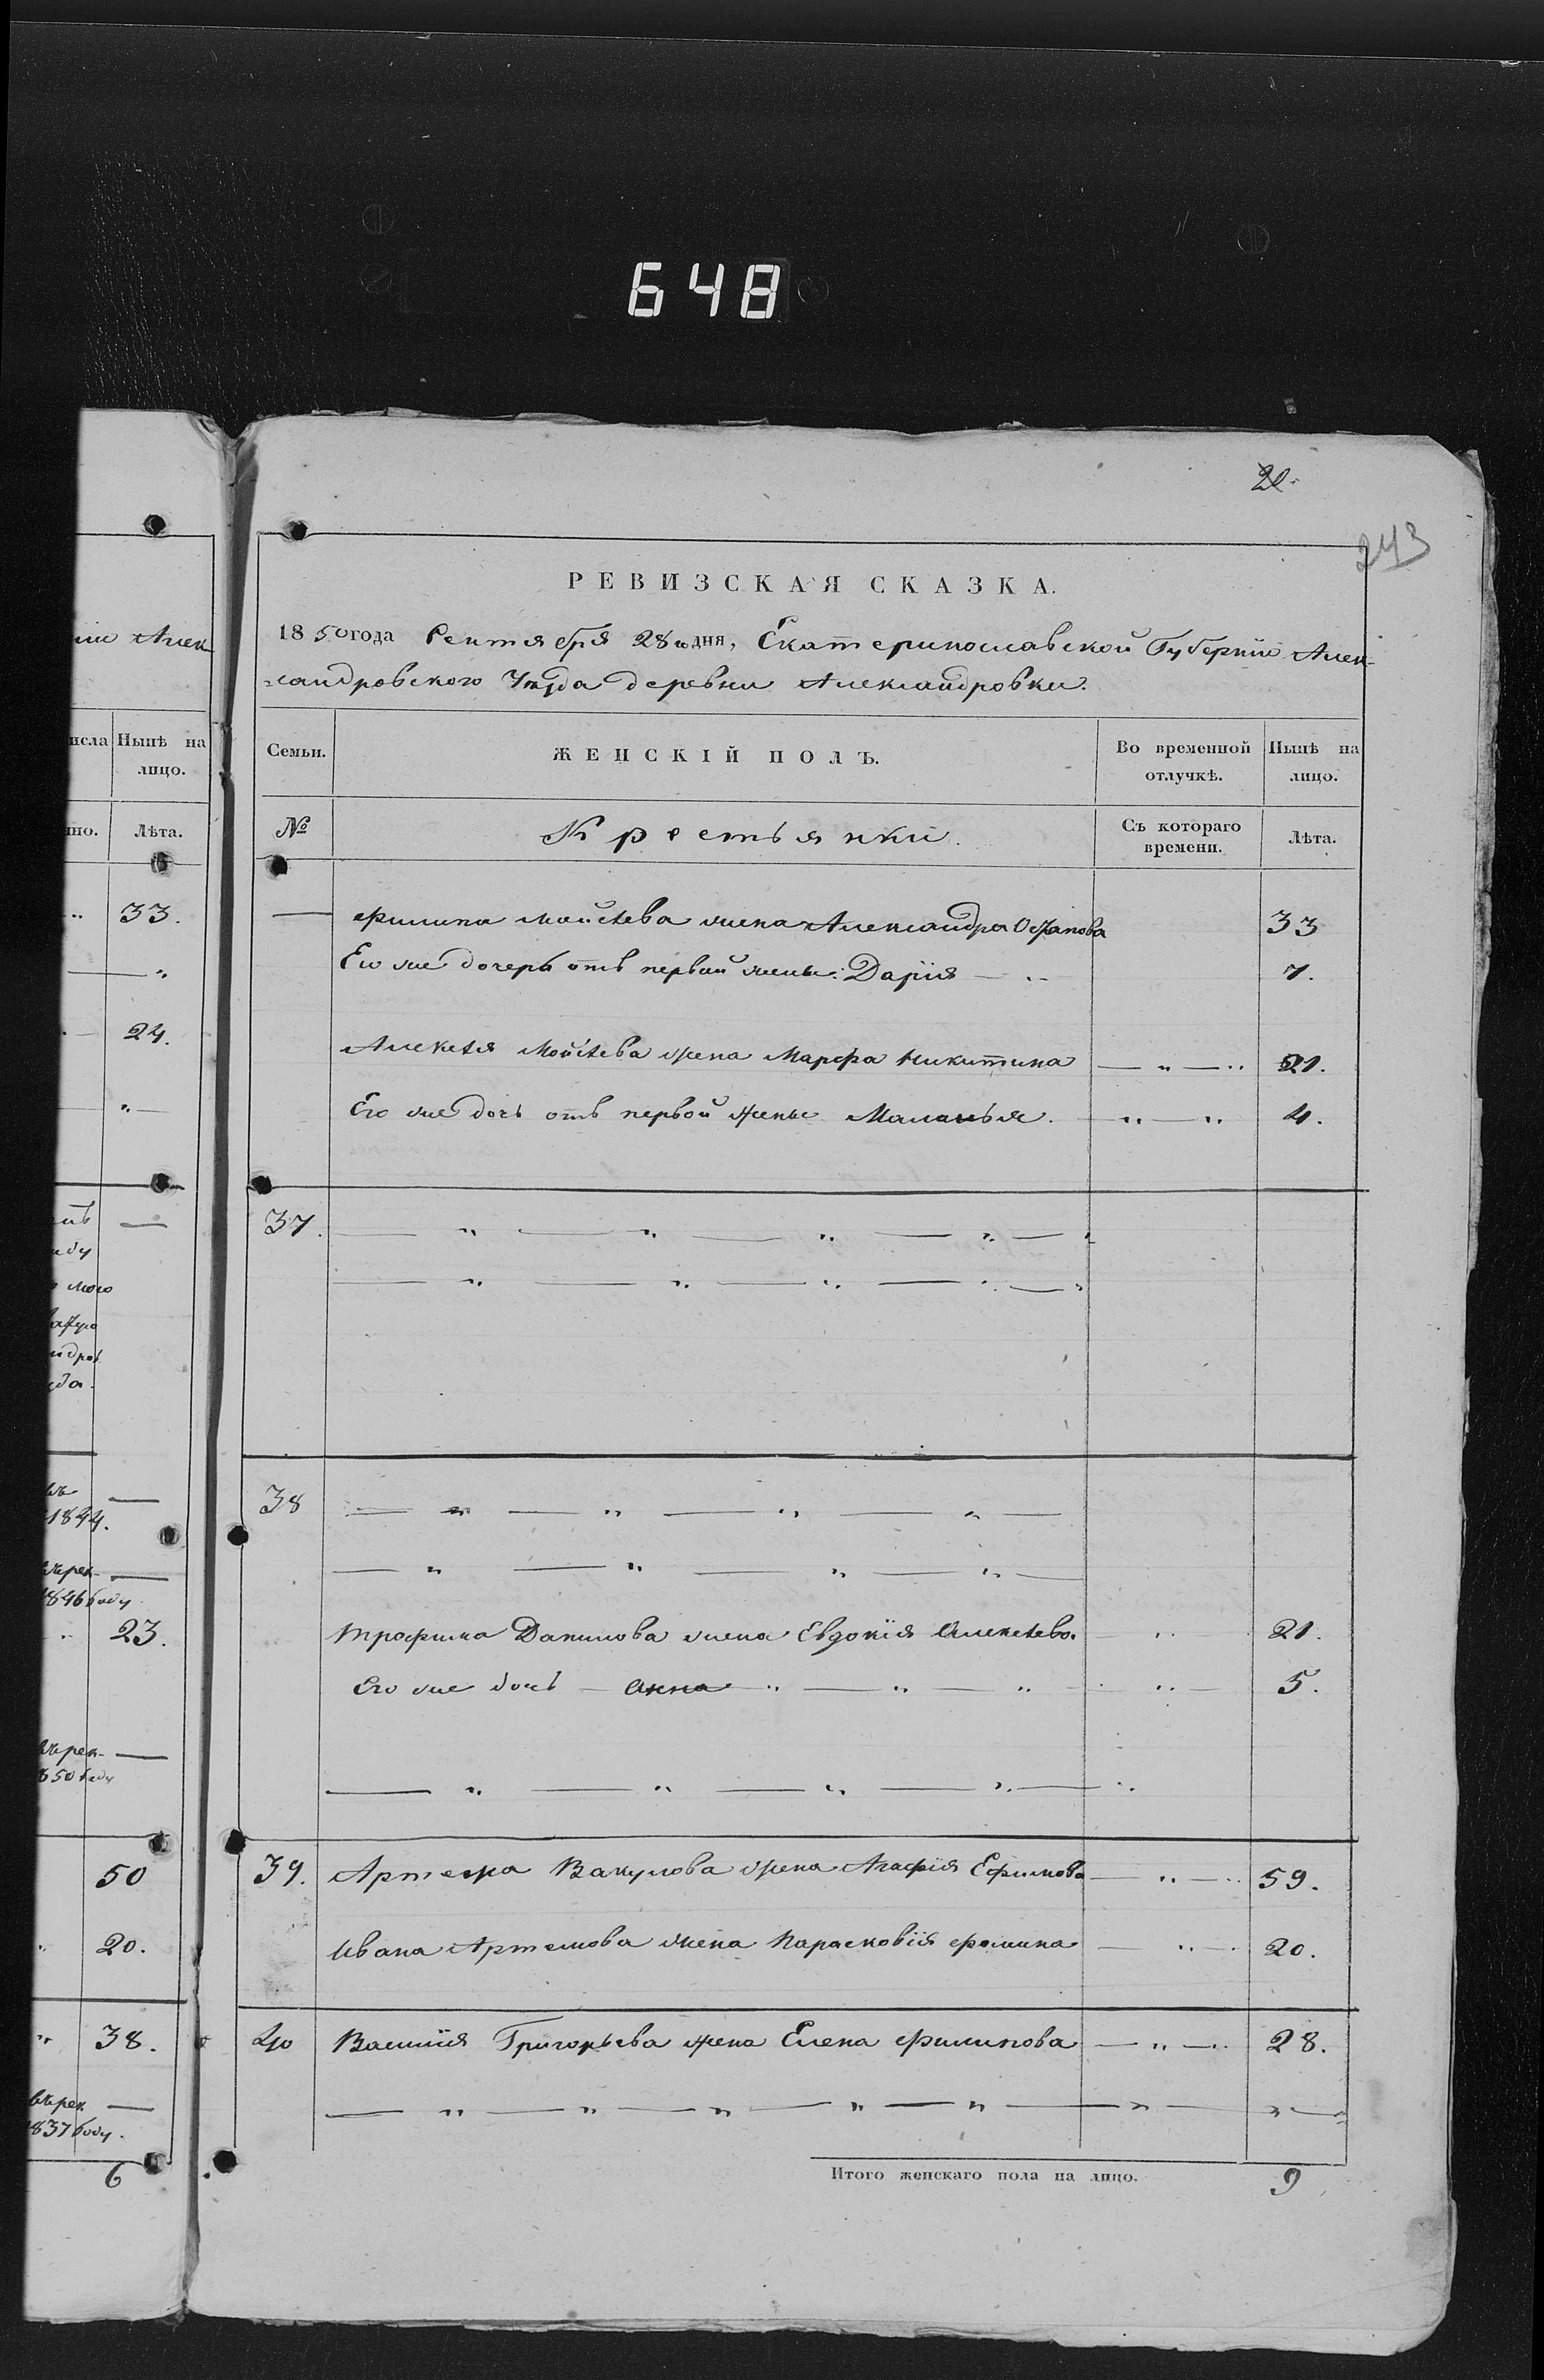 648
20.
243
РЕВИЗСКАЯ СКАЗКА.
1850 года Сентября 28 го дня, Екатеринославской Губерніи Алек-
сандровского Уѣзда деревни Александровки.
Семьи.
ЖЕНСКІЙ ПОЛЪ.
Во временной отлучкѣ.
Нынѣ на лицо.
№
Крестьянки.
Съ котораго времени.
Лѣта.
— Филипа Мойсѣева жена Александра 33
Его же дочерь отъ первой жены: Дарія — „ 7.
Алексѣя Мойсѣева жена Марфа Никитина — „ — „ 21.
Его же дочь отъ первой жены Маланья. — „ — „ 4.
37. — „ — „ — „ — „ — „
— „ — „ — „ — „ — „
38 — „ — „ — „ — „ —
— „ — „ — „ — „ —
Трофима Данилова жена Евдокія Алексѣева — „ 21.
Его же дочь — Анна — „ — „ — „ — „ — 5.
— „ — „ — „ — „ — „
39. Артема Вакулова жена Агафія Ефимова — „ — „ 59.
Ивана Артемова жена Парасковія Фомина — „ — „ 20.
40 Василія Григорьева жена Елена Филипова — „ — „ 28.
— „ — „ — „ — „ — „ — „ — „ —
Итого женскаго пола на лицо. 9
ніи Алек-
исла
Нынѣ на лицо.
но.
Лѣта.
„ 33.
— „
„ — 24.
— „ —
мого
1844.
1846 году
„ 23.
въ рек- —
1850 году
50
„ 20.
„ 38.
въ рек —
1837 году.
6